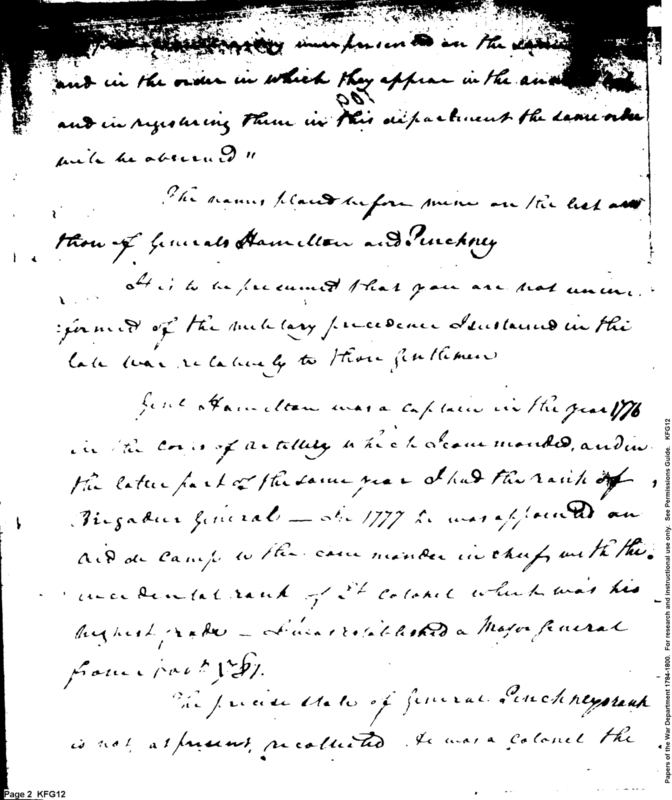 were presented on the same
and in the order in which they appear in the
and in registering them in this department the same order
will be observed"
The names placed before mine on the list are
those of Generals Hamilton and Pinckney
It is to be presumed that you are not unin
formed of the military precedence I sustained in the
late war relatively to those Gentlemen
Genl Hamilton was a captain in the year 1776
in the corps of artillery which I commanded, and in
the latter part of the same year I had the rank of
Brigadier General — In 1777 he was appointed an
aid de camp to the commander in chief, with the
incidental rank of Lt colonel which was his
highest grade — I was established a Major General
from 1781.
The precise state of General Pinckneys rank
is not, at present, recollected. He was a colonel the
Page 2 KFG12
Papers of the War Department 1784-1800. For research and instructional use only. See Permissions Guide. KFG12